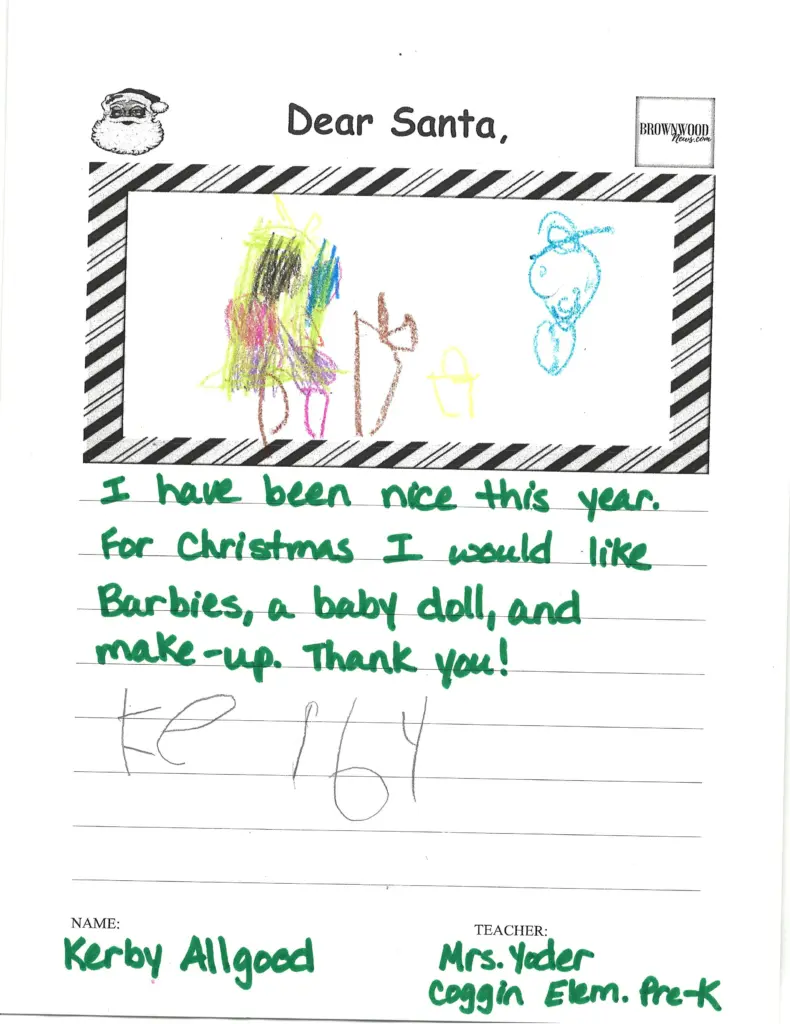 Dear Santa,
BROWNWOOD
News.com
I have been nice this year.
For Christmas I would like
Barbies, a baby doll, and
make-up. Thank you!
Kerby
NAME:
TEACHER:
Kerby Allgood
Mrs. Yoder
Coggin Elem. Pre-K